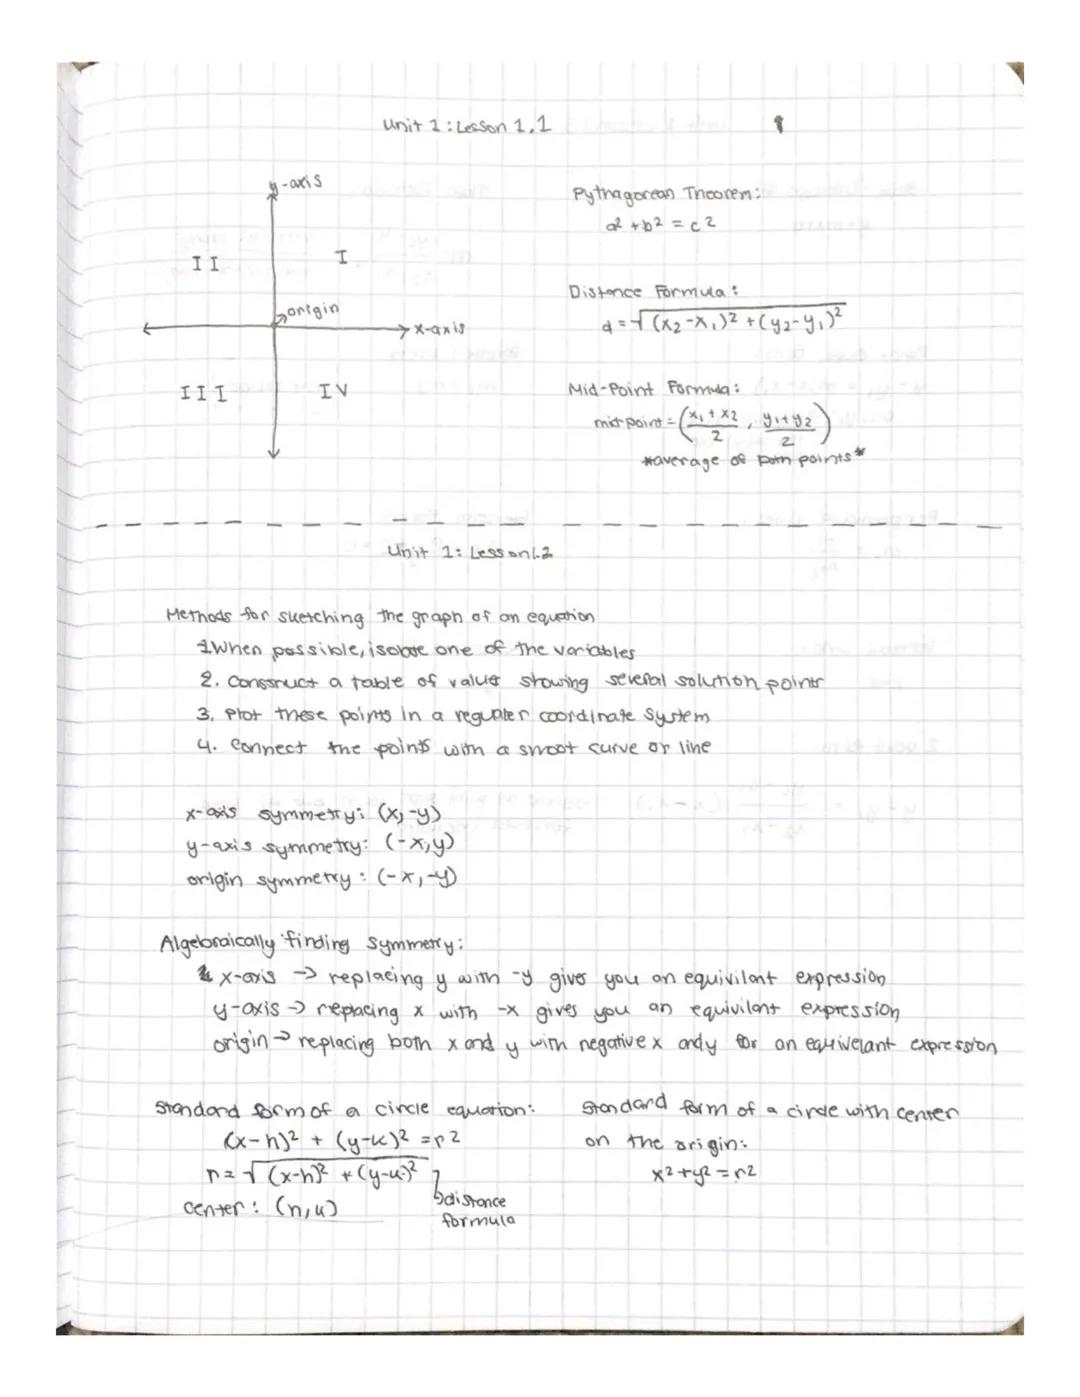 Unit 1: Lesson 1.1
1
y-axis
II
I
origin
x-axis
III
IV
Pythagorean Theorem:
a² + b² = c²
Distance Formula:
d = √(x₂-x₁)² + (y₂-y₁)²
Mid-Point Formula:
midpoint = (x₁ + x₂ / 2, y₁ + y₂ / 2)
*average of both points*
Unit 1: Lesson 1.2
Methods for sketching the graph of an equation
1. When possible, isolate one of the variables
2. Construct a table of values showing several solution points
3. Plot these points in a regular coordinate system
4. Connect the points with a smoot curve or line
x-axis symmetry: (x, -y)
y-axis symmetry: (-x, y)
origin symmetry: (-x, -y)
Algebraically finding symmetry:
x-axis → replacing y with -y gives you an equivilant expression
y-axis → replacing x with -x gives you an equivilant expression
origin → replacing both x and y with negative x and y for an equivelant expression
Standard form of a circle equation:
(x-h)² + (y-k)² = r²
r = √(x-h)² + (y-k)²
distance
formula
center: (h, k)
Standard form of a circle with center
on the origin:
x² + y² = r²